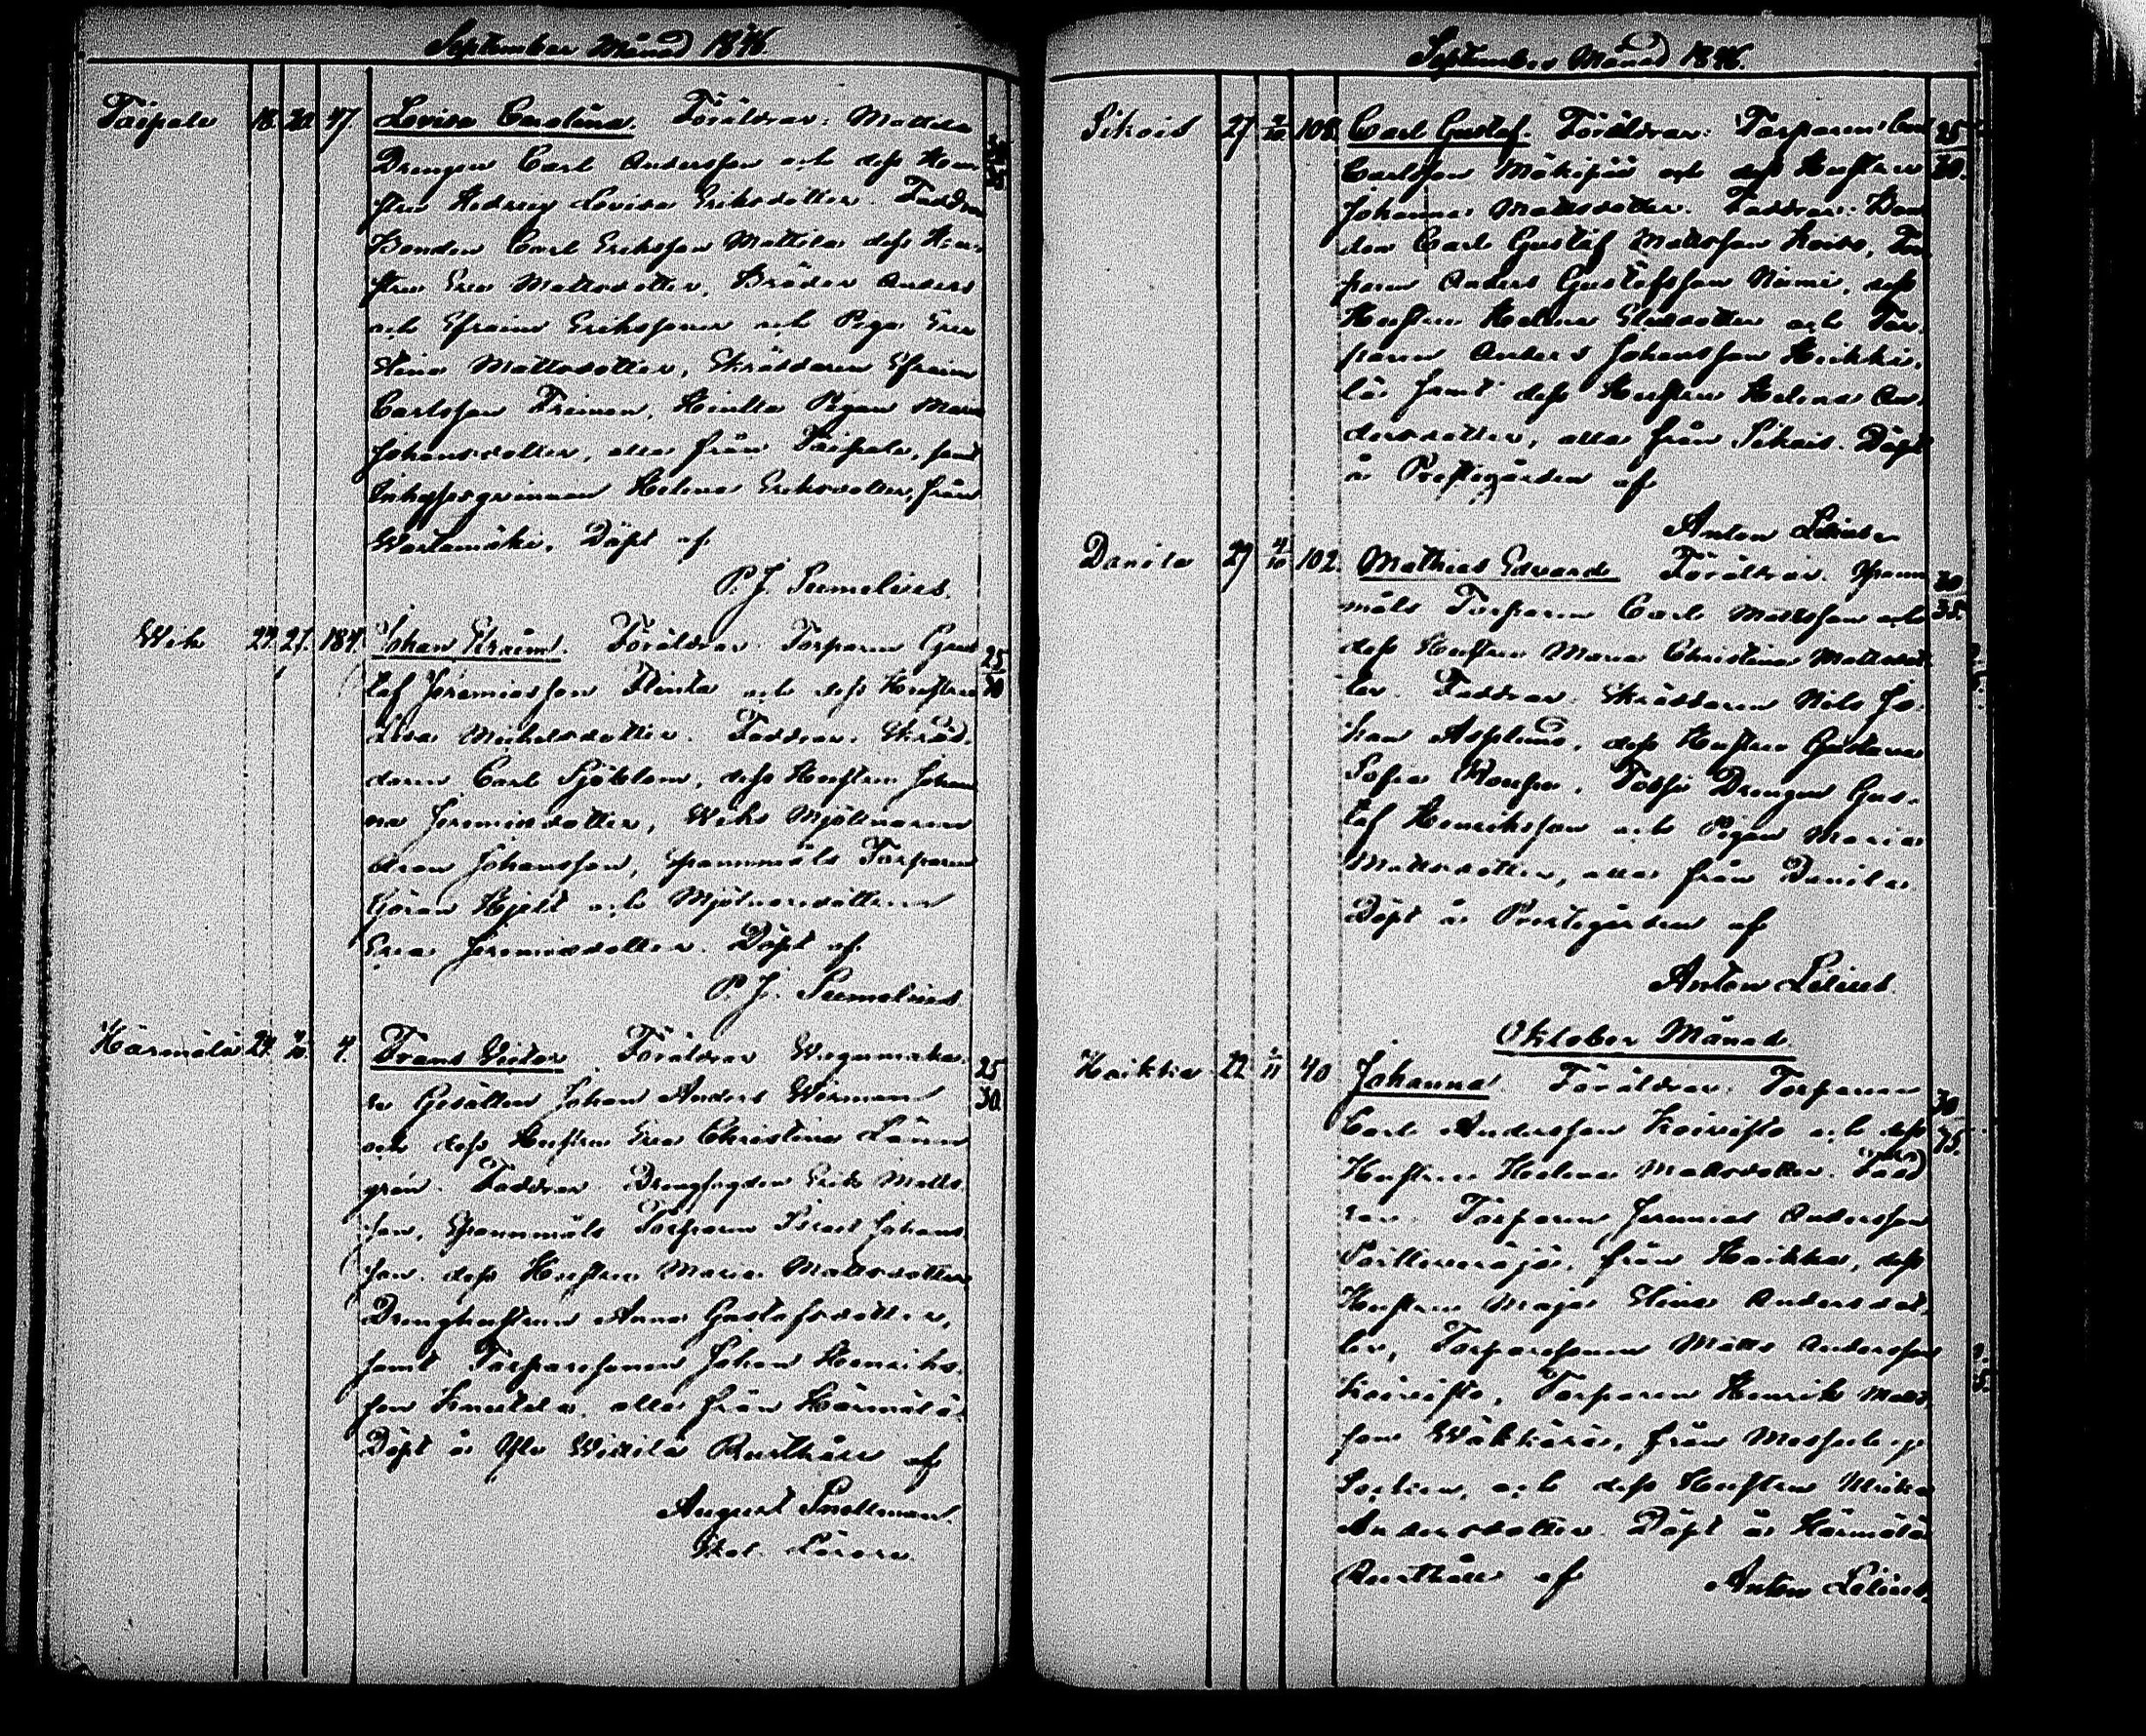 September Månad 1846
Taipale 18. 20. 47. Lovisa Carolina. Föräldrar: Mattila
Drengen Carl Andersson och dess Hu-
stru Hedvig Lovisa Eriksdotter. Faddrar
Bonden Carl Eriksson Mattila dess Hu-
stru Eva Mattsdotter, Bröder Anders
och Efraim Erikssöner och Piga Eva
Stina Mattsdotter, Skräddaren Efraim
Carlsson Friman, Pigan Maria
Johansdotter, alla från Taipale, samt
Inhysesqvinnan Helena Eriksdotter, från
Wartamäki. Döpt af
P. J. Sumelius.
Wik 24. 27. 184. Johan Efraim. Föräldrar Torparen Gus 25
taf Jeremiasson Flinta och dess Hustru 30
Lisa Michelsdotter. Faddrar. Skräd-
daren Carl Sjöblom, dess Hustru Johan
na Jeremiasdotter, Wiks Mjölnaren
Johansson, Spannmåls Torparen
Göran Hjelt och Mjölnaredottren
Eva Jeremiasdotter. Döpt af
P. J. Sumelius
Härmälä 24. 4. Frans Victor Föräldrar Wagnmaka- 25
re Gesällen Johan Anders Wirman 30.
och dess Hustru Eva Christina Lönn
grén. Faddrar Drengfogden Erik Matts
son, Spannmåls Torparen Johans
son. dess Hustru Maria Mattsdotter
Drenghustrun Anna Gustafsdotter,
samt Torparesonen Johan Henriks
son Knuutila, alla från Härmälä.
Döpt å Yli Wittilä Rusthåll af
August Snellman.
September Månad 1846.
Sikais 27 2/10 108. Carl Gustaf. Föräldrar: Torparen 25
Carlsson Mäkipää och dess Hustru 30.
Johanna Mattsdotter. Faddrar: Bon
den Carl Gustaf Mattsson Koivo, Tor
paren Anders Gustafsson Niemi, dess
Hustru Helena och Tor-
paren Anders Johansson Heikki-
lä samt dess Hustru Helena An-
dersdotter, alla från Sikais. Döpt
å Prestegården af
Anton Lilius
Danila 29 4/10 102. Mathias Edvard Föräldrar. Spann 30
måls Torparen Carl Mattsson och 35.
dess Hustru Maria Christina Mattsdot
ter. Faddrar. Skräddaren Nils Jo-
han Asplund, dess Hustru Gustava
Sofia, Drengen Gus-
taf Henriksson och Pigan Maria
Mattsdotter, alla från Danila
Döpt å Prestegården af
Anton Lilius.
Oktober Månad
Haikka 22 1/11 40 Johanna Föräldrar. Torparen 30
Carl Andersson Koivisto och dess 35.
Hustru Helena Mattsdotter. Fadd
rar. Torparen Jeremias Andersson
från Haikka, dess
Hustru Maja Stina Andersdot-
ter, Torparesonen Matts Andersson
Koivisto, Torparen Henrik Matts
son Wäkkärä, från Messuby
Socken, och dess Hustru Ulrika
Andersdotter. Döpt å Härmälä
Rusthåll af Anton Lilius.